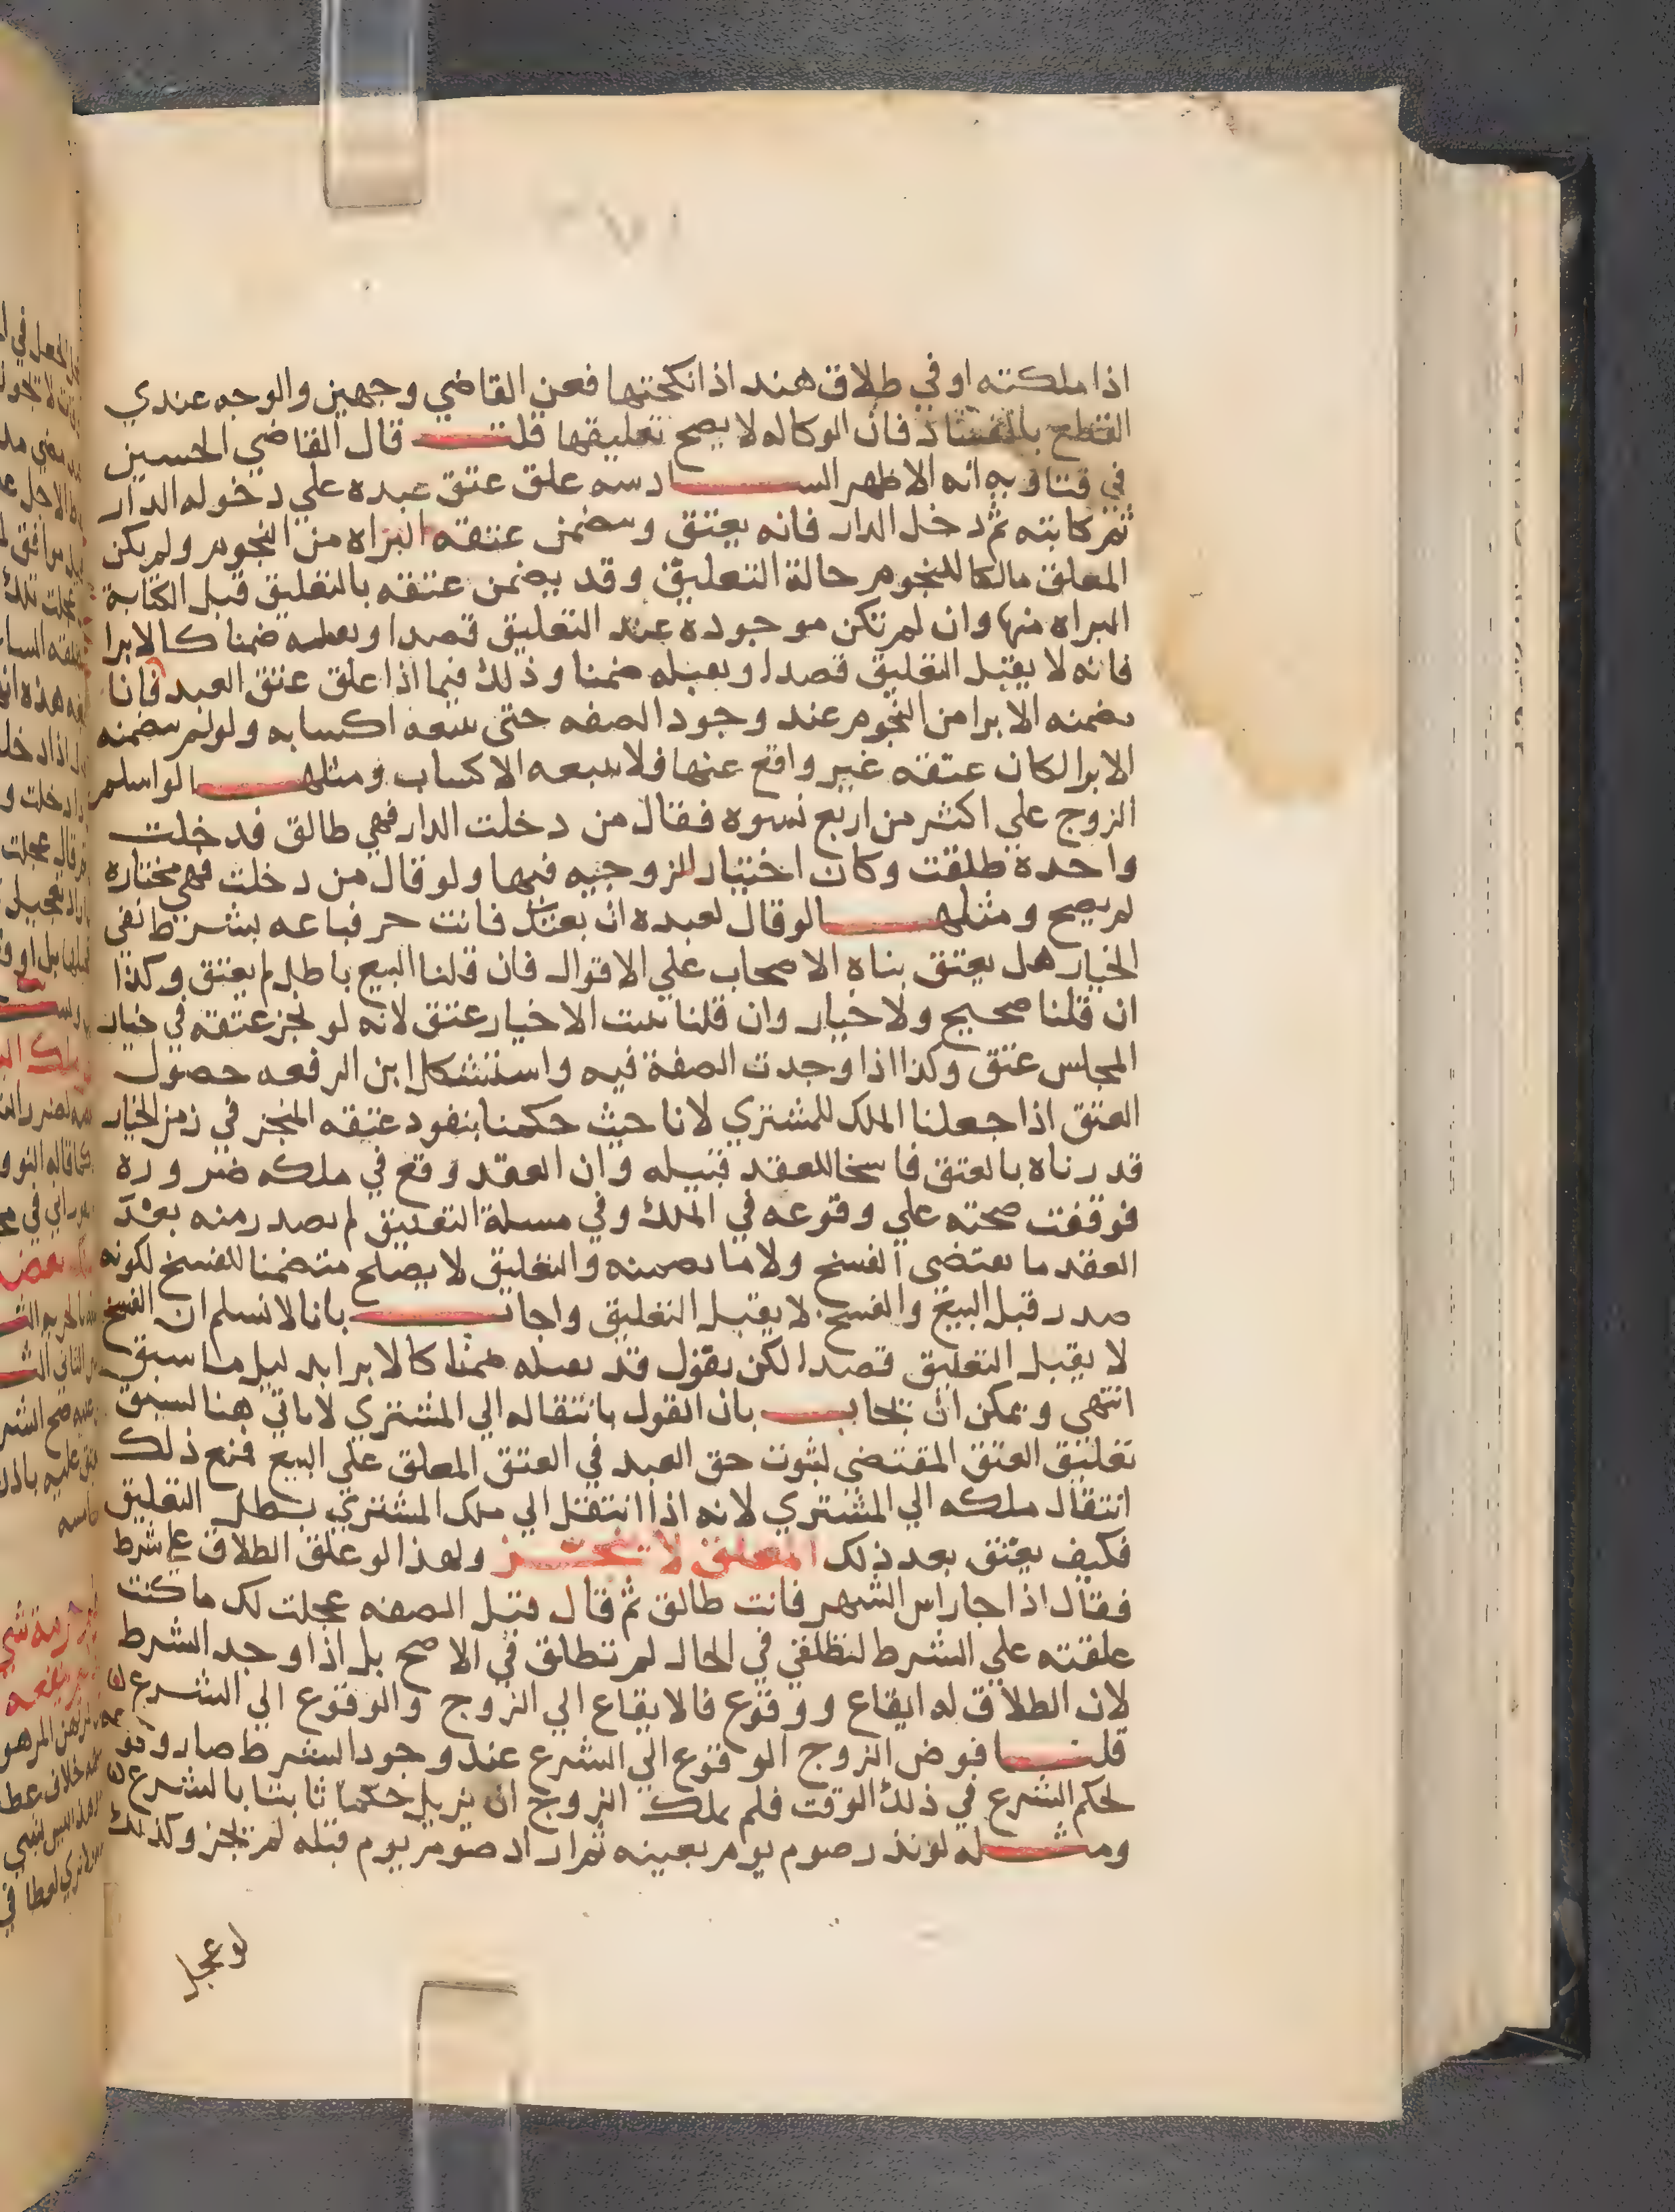 اذا ملكته او في طلاق هند اذا نكحتها فعن القاضي وجهين والوجه عندي
القطع بالفساد فان الوكاله لا يصح تعليقها قلت قال القاضي الحسين
في فتاويه انه الاظهر السادسه علق عتق عبده علي دخوله الدار
ثم كاتبته ثم دخل الدار فانه يعتق ويتضمن عتقه البراه من النجوم ولم يكن
المعلق مالكا للنجوم حالة التعليق وقد يضمن عتقه بالتعليق قبل الكتابة
البراه منها وان لم تكن موجوده عند التعليق قصدا ويقبله ضمنا كالابرا
فانه لا يقبل التعليق قصدا ويقبله ضمنا وذلك فيما اذا علق عتق العبد فانا
نضمنه الابرا من النجوم عند وجود الصفه حتى تتبعه اكسابه ولو لم يتضمنه
الابرا لكان عتقه غير واقع عنها فلا تتبعه الاكساب ومثلها لو اسلم
الزوج علي اكثر من اربع نسوه فقال من دخلت الدار فهي طالق فدخلت
واحدة طلقت وكان اختيار للزوجيه فيها ولو قال من دخلت فهي مختاره
لم يصح ومثلها لو قال لعبده ان بعتك فانت حر فباعه بشرط نفي
الخيار هل يعتق بناه الاصحاب علي الاقوال فان قلنا البيع باطل لم يعتق وكذا
ان قلنا صحيح ولا خيار وان قلنا يثبت الاخيار عتق لانه لو نجز عتقه في خيار
المجلس عتق وكذا اذا وجدت الصفة فيه واستشكل ابن الرفعه حصول
العتق اذا جعلنا الملك للمشتري لانا حيث حكمنا بنفود عتقه المنجز في زمن الخيار
قدرناه بالعتق فاسخا للعقد قبيله وان العقد وقع في ملكه ضروره
فوقفت صحته علي وقوعه في الملك وفي مسلة التعليق لم يصدر منه بعد
العقد ما يقتضى الفسخ ولا ما يضمنه والتعليق لا يصلح متضمنا للفسخ لكونه
صدر قبل البيع والفسخ لا يقبل التعليق واجاب بانا لا نسلم ان الفسخ
لا يقبل التعليق قصدا لكن يقول قد يقبله ضمنا كالابرا بدليل ما سبق
انتهي ويمكن ان يجاب بان القول بانتقاله الي المشتري لا ياتي هنا لسبق
تعليق العتق المقتضي لثبوت حق العبد في العتق المعلق علي البيع فمنع ذلك
انتقال ملكه الي المشتري لانه اذا انتقل الي ملك المشتري بطل التعليق
فكيف يعتق بعد ذلك المعلق لا يتنجز ولهذا لو علق الطلاق علي شرط
فقال اذا جا راس الشهر فانت طالق ثم قال قبل الصفه عجلت لك ما كنت
علقته علي الشرط لتطلقي في الحال لم تطلق في الاصح بل اذا وجد الشرط
لان الطلاق له ايقاع ووقوع فالايقاع الي الزوج والوقوع الي الشرع
قلنا فوض الزوج الوقوع الي الشرع عند وجود الشرط صار
لحكم الشرع في ذلك الوقت فلم يملك الزوج ان يزيل حكما ثابتا بالشرع
ومثله لو نذر صوم يوم بعينه ثم اراد صوم يوم قبله لم يجز وكذلك
لو عجل